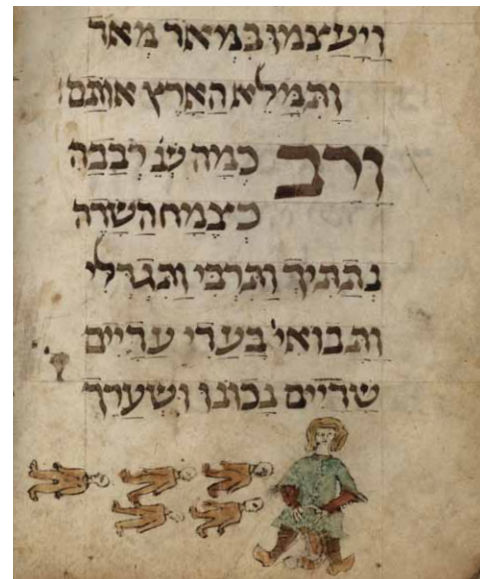 וַיַּעַצְמוּ בִּמְאֹד מְאֹד
וַתִּמָּלֵא הָאָרֶץ אוֹתָם
וָרָב כְּמָה שֶׁנֶּ' רְבָבָה
כְּצֶמַח הַשָּׂדֶה
נְתַתִּיךְ וַתִּרְבִּי וַתִּגְדְּלִי
וַתָּבוֹאִי בַּעֲדִי עֲדָיִים
שָׁדַיִים נָכוֹנוּ וּשְׂעָרֵךְ